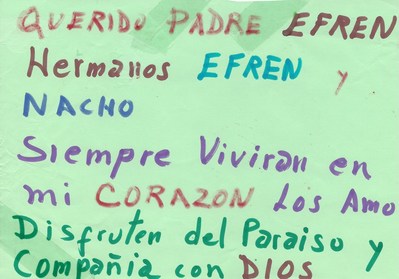 QUERIDO PADRE EFREN
Hermanos EFREN y
NACHO
Siempre Viviran en
mi CORAZON Los Amo
Disfruten del Paraiso y
Compañia con DIOS